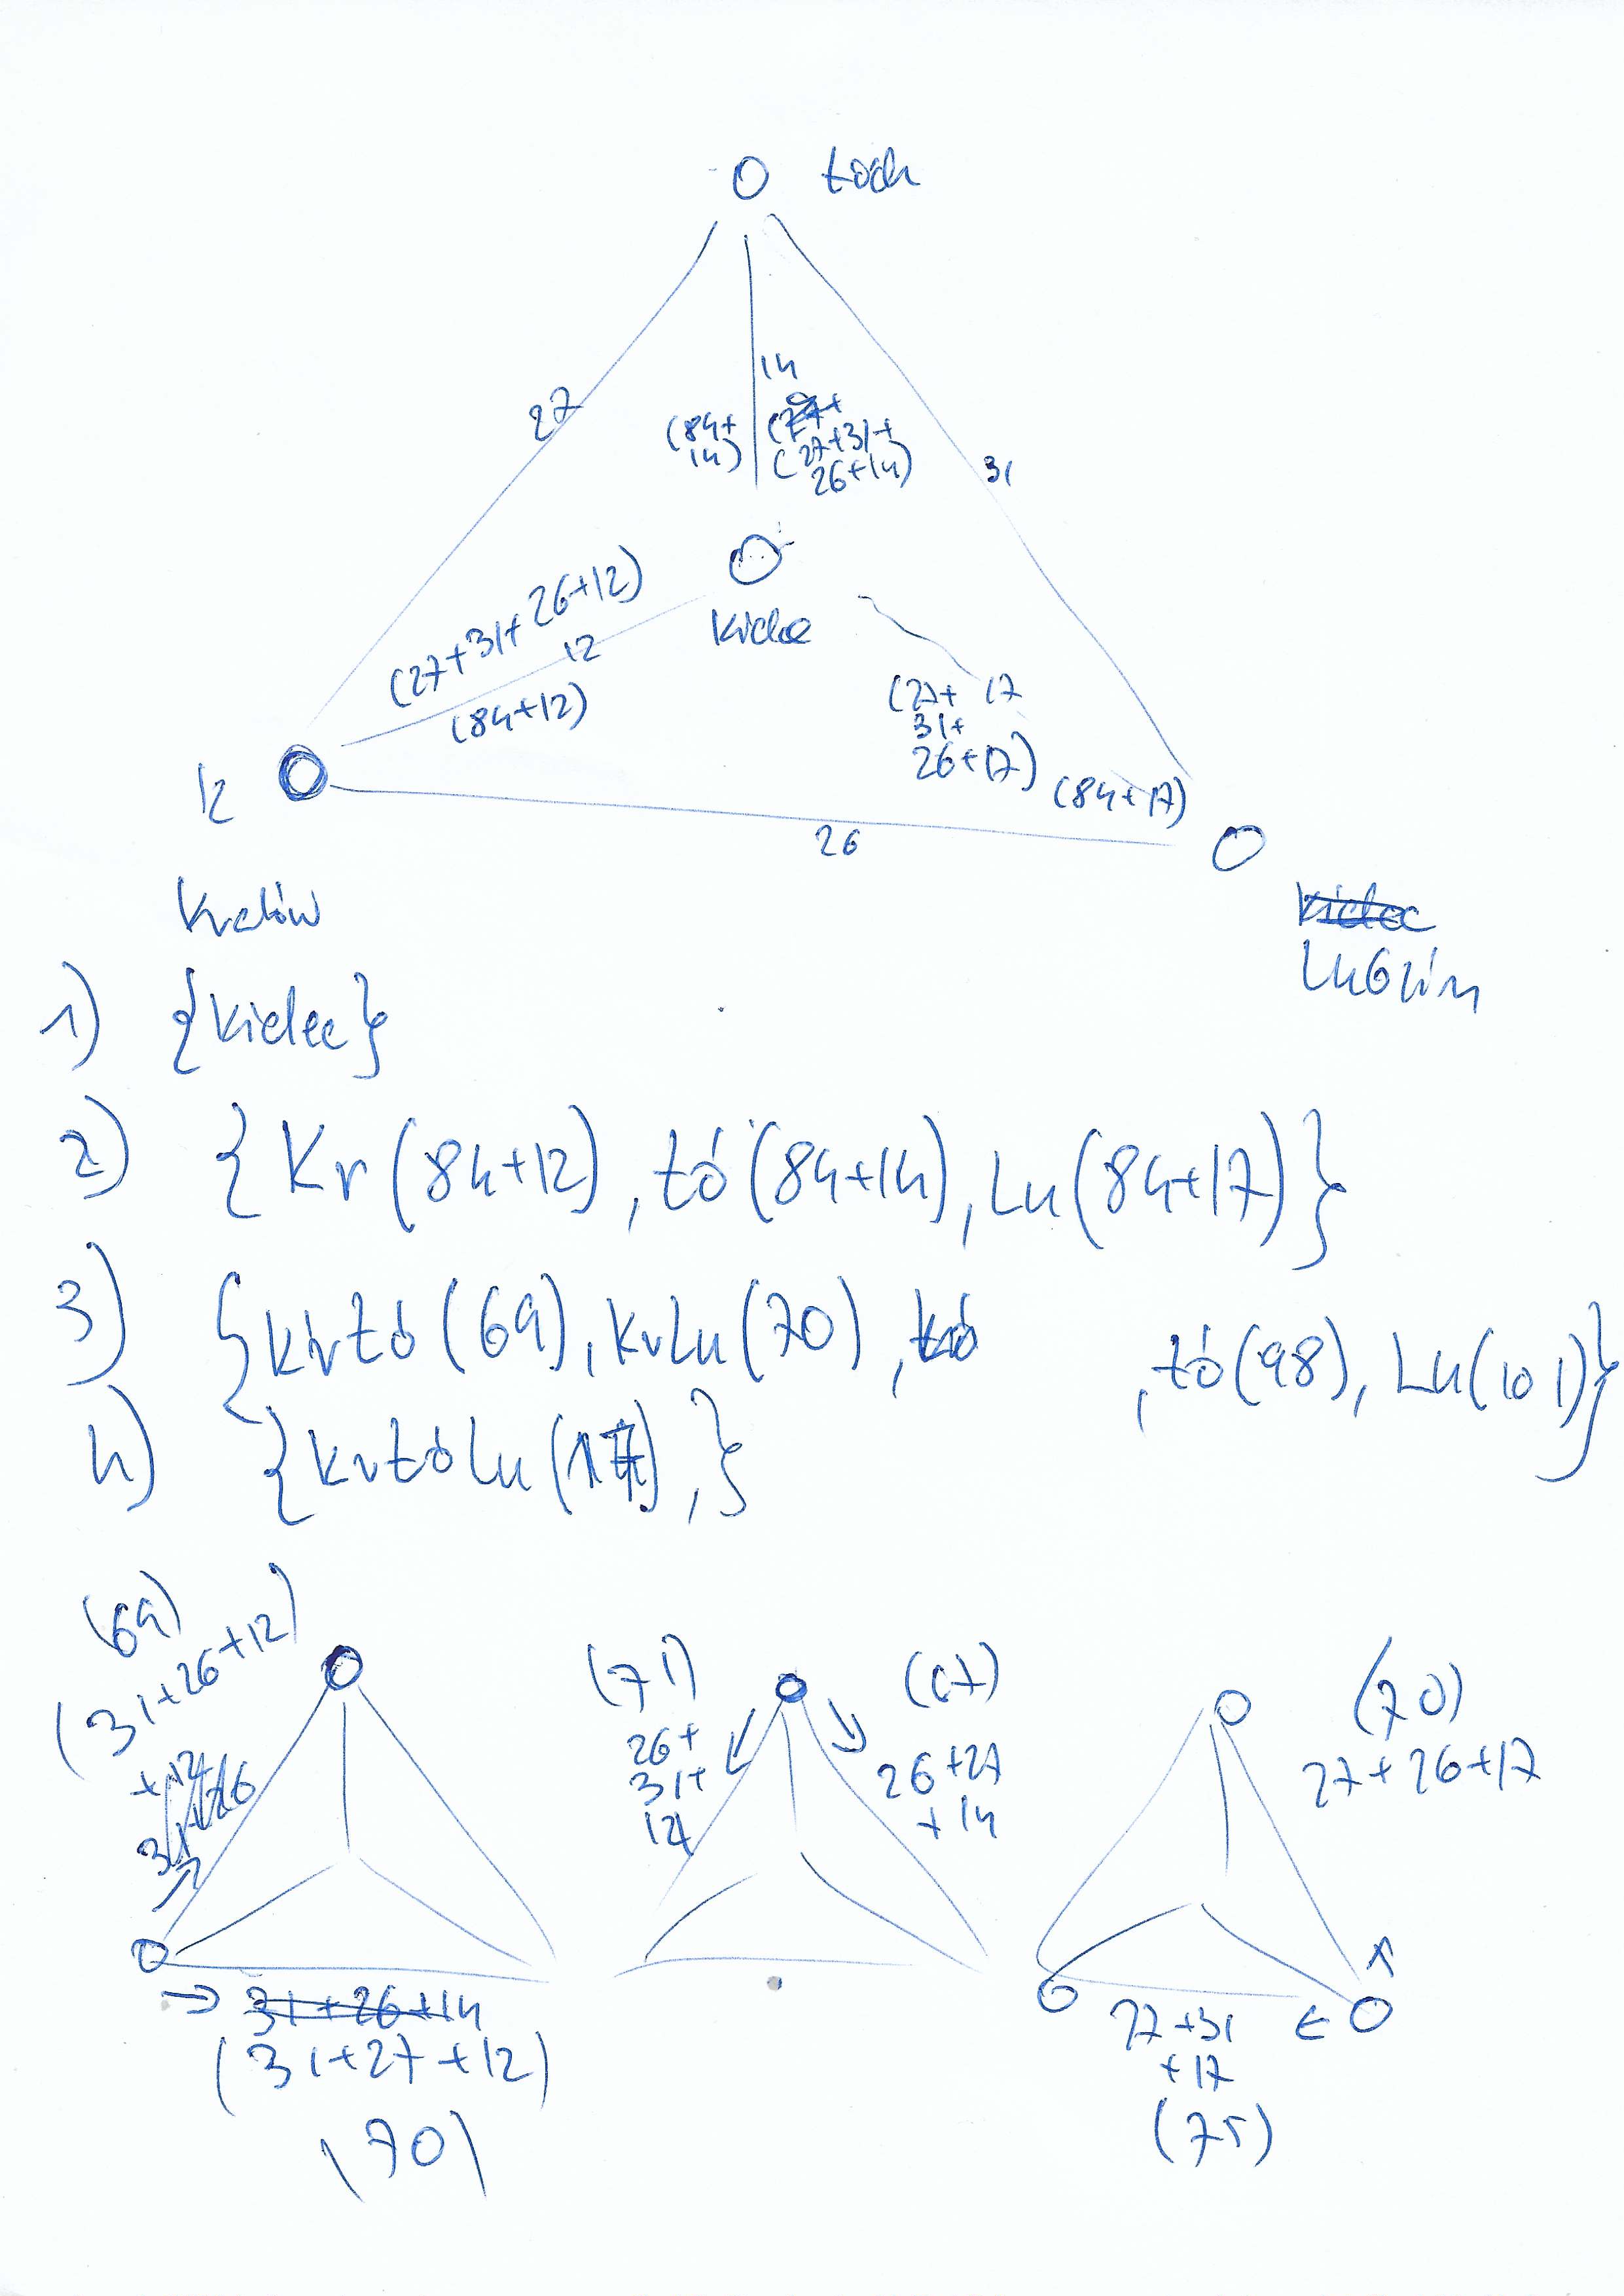 Łódź
27
14
(84+
14)
(27+
(27+31+
26+14)
31
(27+31+26+12)
12
(84+12)
Kielce
(27+ 17
31+
26+17)
(84+17)
26
K
Kraków
Kielce
Lublin
1) {Kielce}
2) {Kr(84+12), Łó(84+14), Lu(84+17)}
3) {KrŁó(69), KrLu(70), Łó , Łó(98), Lu(101)}
4) {KrŁóLu( ), }
(69)
(31+26+12)
→ 31+26+14
(31+27+12)
(70)
(71)
26+
31+
14
(67)
26+27
+14
(70)
27+26+17
27+31
+17
(75)